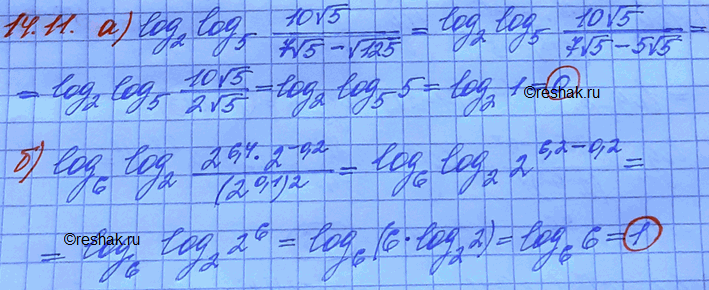 14.11. а) log₂ log₅ 10√5 / (7√5 − √125) = log₂ log₅ 10√5 / (7√5 − 5√5) =
= log₂ log₅ 10√5 / 2√5 = log₂ log₅ 5 = log₂ 1 = 0
reshak.ru
б) log₆ log₂ (2^6,4 · 2^−0,2) / (2^0,1)² = log₆ log₂ 2^6,2−0,2 =
reshak.ru
= log₆ log₂ 2⁶ = log₆ (6 · log₂ 2) = log₆ 6 = 1